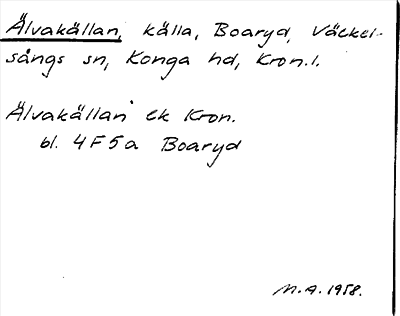 Älvakällan, källa, Boaryd, Väckel-
sångs sn, Konga hd, Kron.l.
Älvakällan ek Kron.
bl. 4F5a Boaryd
M.A. 1958.